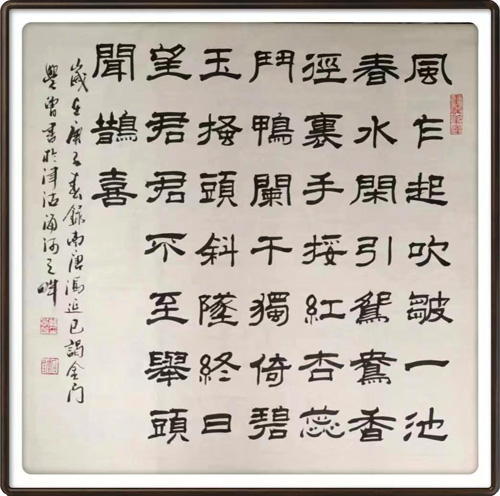 風乍起吹皺一池
春水閑引鴛鴦香
徑裏手挼紅杏蕊
鬥鴨闌干獨倚碧
玉搔頭斜墜終日
望君君不至舉頭
聞鵲喜
歲在庚子春錄南唐馮延巳謁金门
曾書於津沽海河之畔